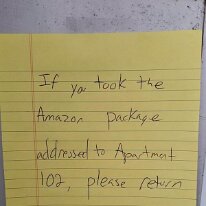 If you took the
Amazon package
addressed to Apartment
102, please return